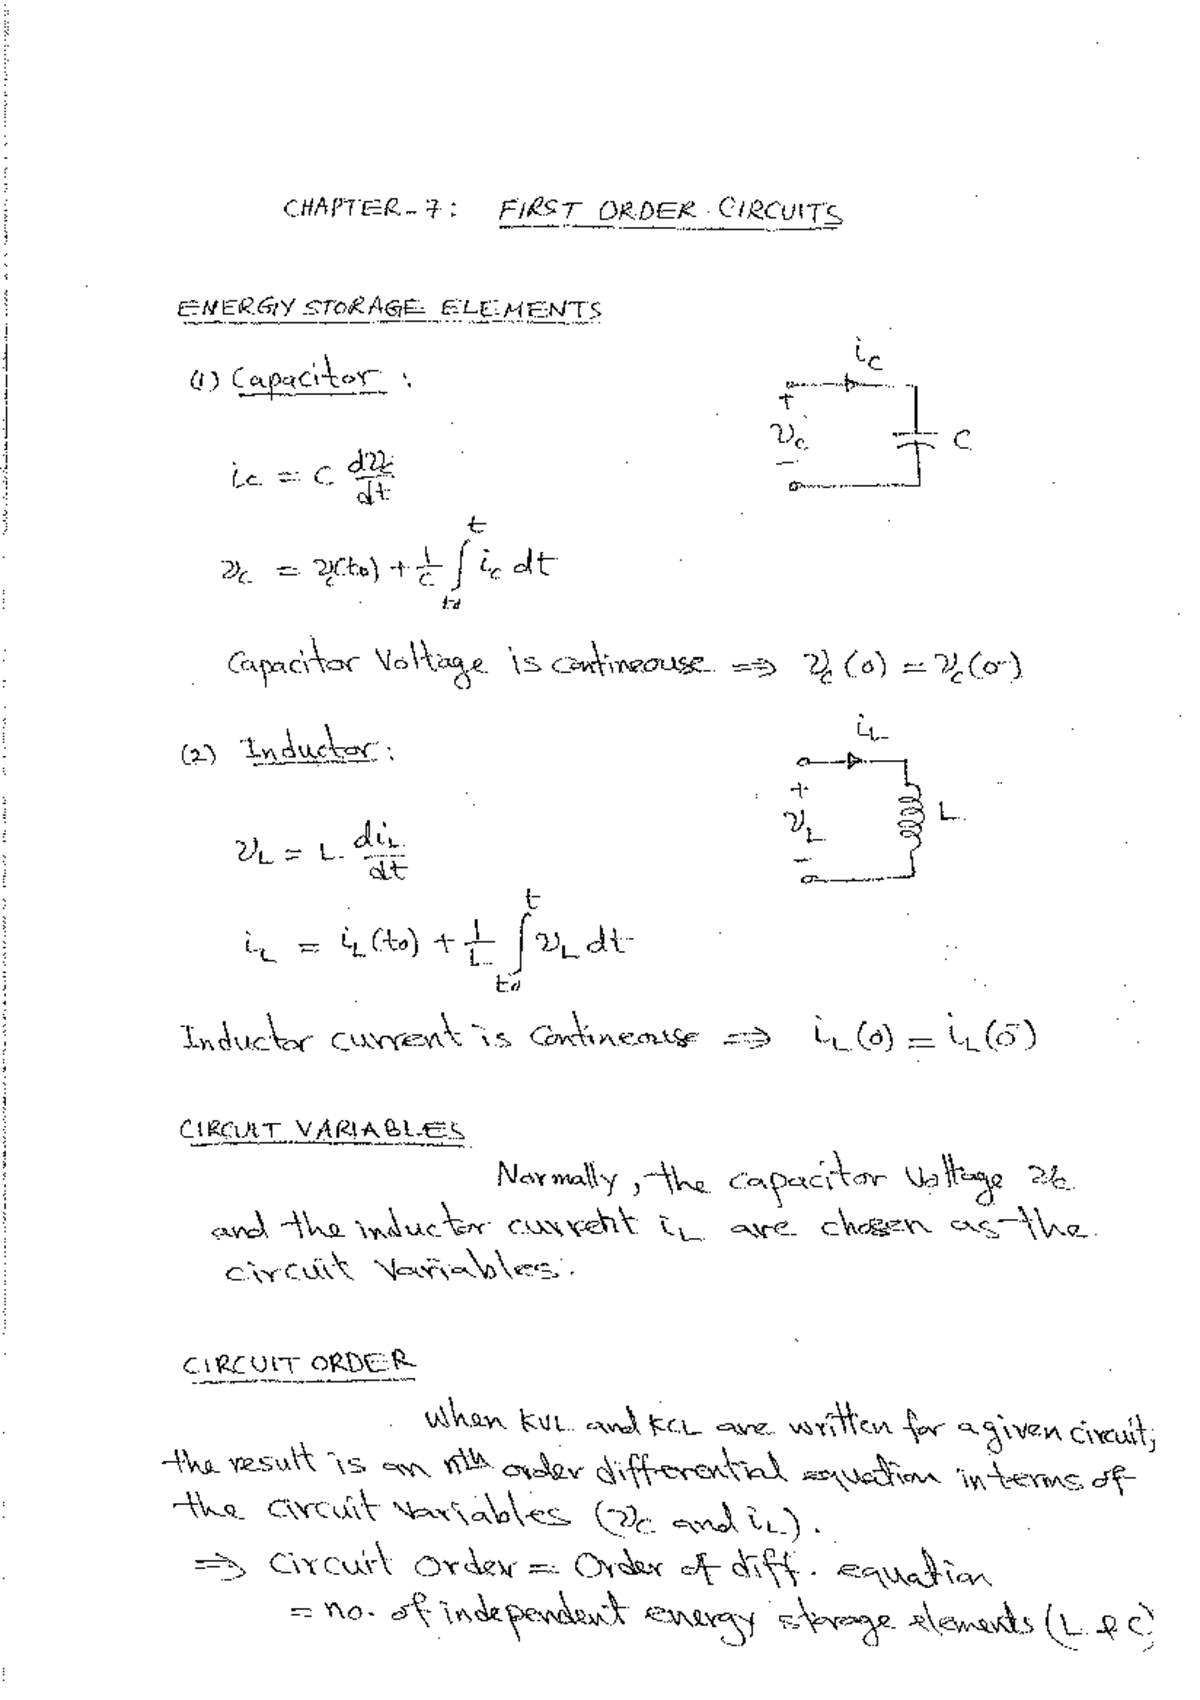 CHAPTER-7: FIRST ORDER CIRCUITS
ENERGY STORAGE ELEMENTS
(1) Capacitor :
i_C
+
v_C
-
C
i_C = C dv_C/dt
v_C = v_C(t_0) + 1/C ∫_{t_0}^{t} i_C dt
Capacitor Voltage is contineouse ⇒ v_C(0) = v_C(0⁻)
(2) Inductor :
i_L
+
v_L
-
L
v_L = L. di_L/dt
i_L = i_L(t_0) + 1/L ∫_{t_0}^{t} v_L dt
Inductor current is Contineouse ⇒ i_L(0) = i_L(0⁻)
CIRCUIT VARIABLES
Normally, the capacitor voltage v_C
and the inductor current i_L are chosen as the
circuit variables.
CIRCUIT ORDER
When KVL and KCL are written for a given circuit,
the result is an nth order differential equation in terms of
the circuit variables (v_C and i_L).
⇒ Circuit Order = Order of diff. equation
= no. of independent energy storage elements (L & C)